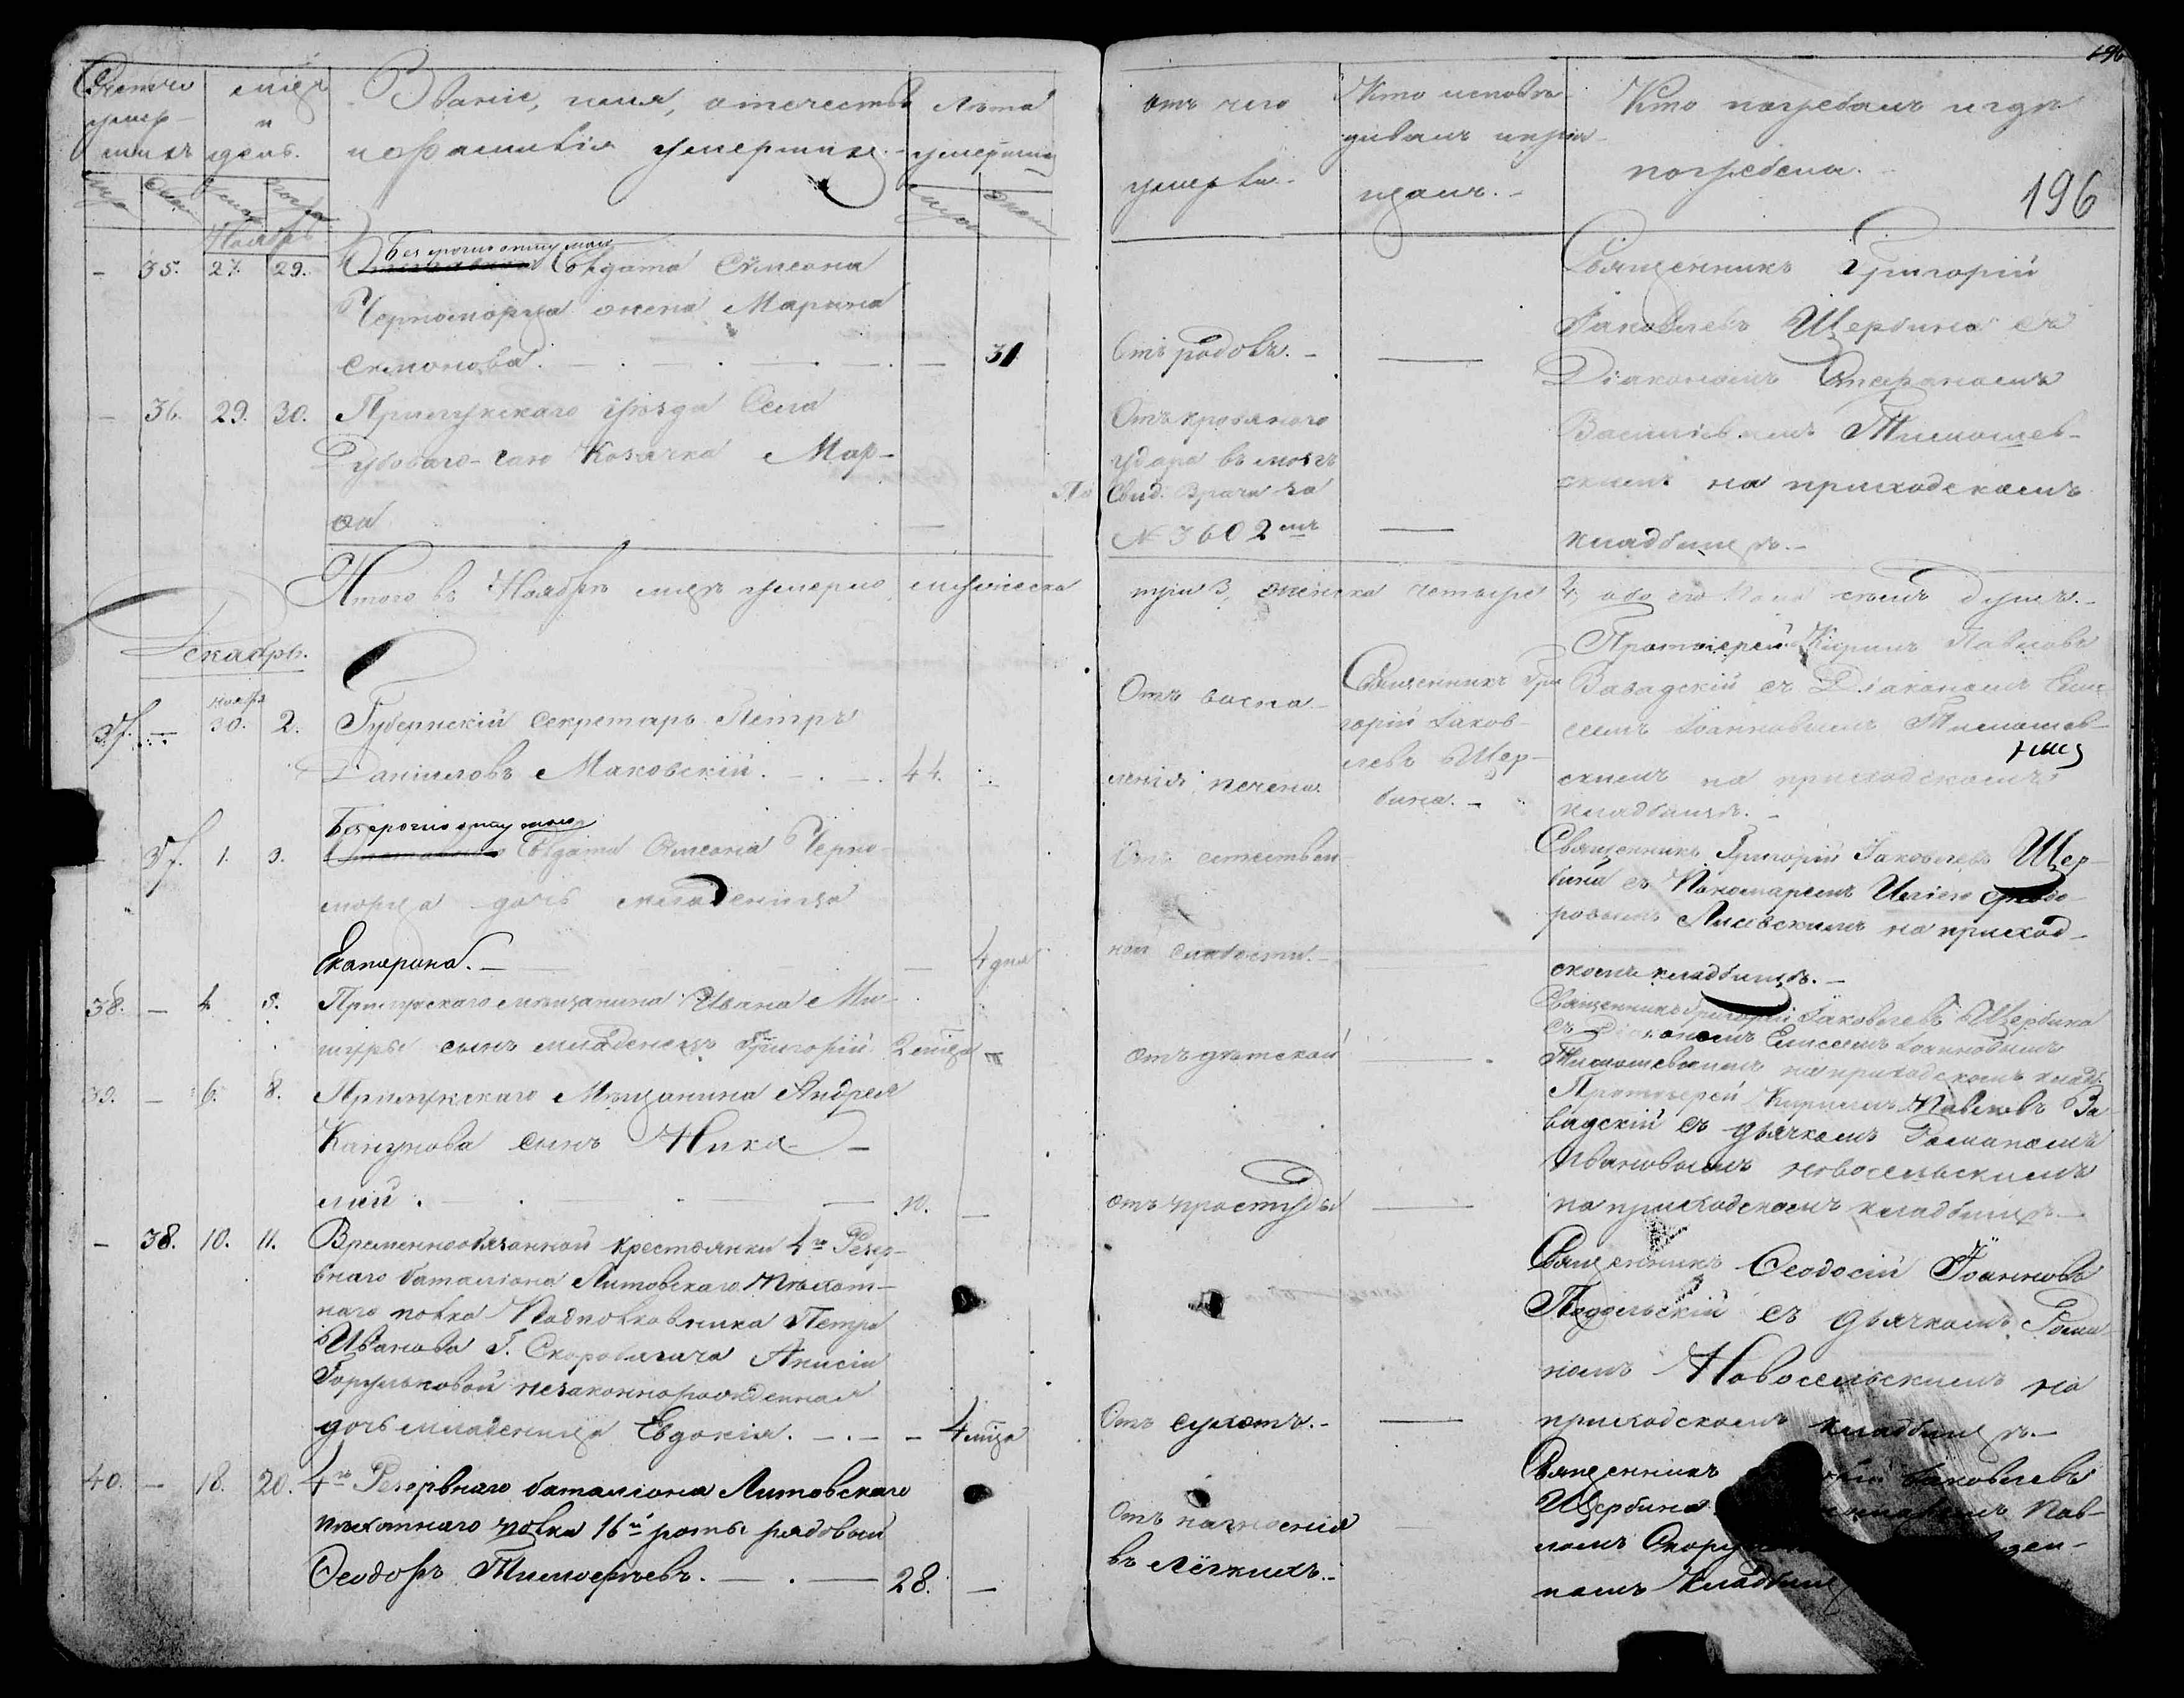 196
Счетъ
умер-
шихъ
мѣсяцъ
и
день.
Званіе, имя, отечество
и фамилія умершихъ.
Лѣта
умершихъ
Отъ чего
умерли.
Кто исповѣ-
дывалъ и прiо-
щалъ.
Кто погребалъ и гдѣ
погребены.
196
Ноябрь
– 35. 27. 29.
Безсрочно отпускнаго
Солдата Сѵмеона
Черноморца жена Марина
Симонова. – 31
Отъ родовъ. –
Священникъ Григорій
Іаковлевъ Щербина съ
Діакономъ Стефаномъ
Василіевымъ Тимошев-
скимъ на приходскомъ
кладбищѣ. –
– 36. 29. 30.
Прилукскаго уѣзда Села
Дубоваго-гаю Козачка Мар-
ѳа
Отъ кроваваго
удара въ мозгъ
По Свид. Врача за
№ 3602мъ
Итого въ Ноябрѣ мѣсяцѣ умерло мужеска
три 3, женска четыре 4, обоего пола семь душъ. –
Декабрь.
Ноября
37. – 30. 2.
Губернскій Секретарь Петръ
Даніиловъ Маковскій. – 44.
Отъ воспа-
ленія печени.
Священникъ Гри
горій Іаков-
левъ Щер-
бина. –
Протоіерей Кирилъ Павловъ
Завадскій съ Діакономъ Елис
сеемъ Іоанновымъ Тимошев-
скимъ на приходскомъ
кладбищѣ. –
– 37. 1. 3.
Безсрочно отпускнаго
Солдата Сѵмеона Черно-
морца дочь младеница
Екатерина. – 4 дня
Отъ естествен-
ной слабости. –
Священникъ Григорій Іаковлевъ Щер-
бина съ Пономаремъ Иліею Ѳеодо-
ровымъ Лисевскимъ на приход-
скомъ кладбищѣ. –
38. – 4. 5.
Прилукскаго мѣщанина Ивана Ми-
шуры сынъ младенецъ Григорій 2 мѣсяца
Отъ дѣтской
Священникъ Григорій Іаковлевъ Щербина
съ Діакономъ Елисеемъ Іоанновымъ
Тимошевскимъ на приходскомъ кладб.
39. – 6. 8.
Прилукскаго Мѣщанина Андрея
Канунова сынъ Нико-
лай. – 10. –
Отъ простуды
Протоіерей Кириллъ Павловъ За-
вадскій съ дьячкомъ Романомъ
Ивановымъ Новосельскимъ
на приходскомъ кладбищѣ. –
– 38. 10. 11.
Временнообязанной крестьянки 4го Резер-
внаго баталіона Литовскаго Пѣхот-
наго полка Подполковника Петра
Иванова Г. Скоробагача Анисіи
Горульковой незаконнорожденная
дочь младеница Евдокія. – 4 мѣсяца
Отъ сухотъ. –
Священникъ Ѳеодосій Іоанновъ
Подольскій съ дьячкомъ Рома-
номъ Новосельскимъ на
приходскомъ кладбищѣ. –
40. – 18. 20.
4го Резервнаго баталіона Литовскаго
пѣхотнаго полка 16й роты рядовый
Ѳеодоръ Тимоѳеевъ. – 28. –
Отъ нагноенія
въ лёгкихъ. –
Священникъ Іаковлевъ
Щербина Пав-
ломъ
номъ кладбищ